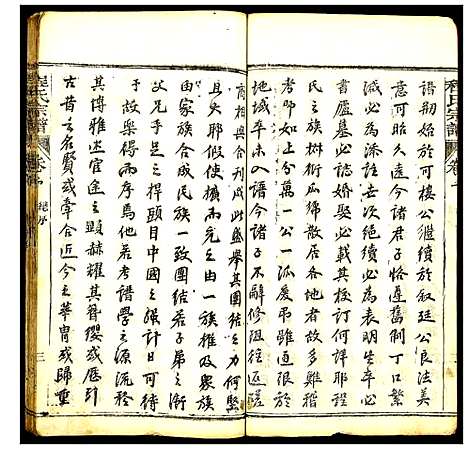 程氏宗譜
卷一
譜期於可樓公繼續於叙廷公良法美
意可可擔今諸君子恪遵舊制丁口繁
減必為添註支絕續必為表明生卒必
書廬墓必誌婚娶必載其校訂何詳耶程
氏之族樹衍瓜綿散居各地者故多難稽
核而未入分萬一公孤爰吊雖迫狠於
地域然未入譜今諸子不辭修阻往返蹉
商相與合刊成此盛舉其團結之力何堅
且久耶假使擴而充之由一族推及衆族
由家族合成民族一致團結若子弟之衛
父兄手足之捍頭目中國之强計日可待
于故樂得而序焉他若考譜學之源流矜
其博雅述宦途之顯赫耀其簪纓或歷引
古昔之名賢或牽合近今之華胄或歸重
程氏宗譜
卷一
序
三